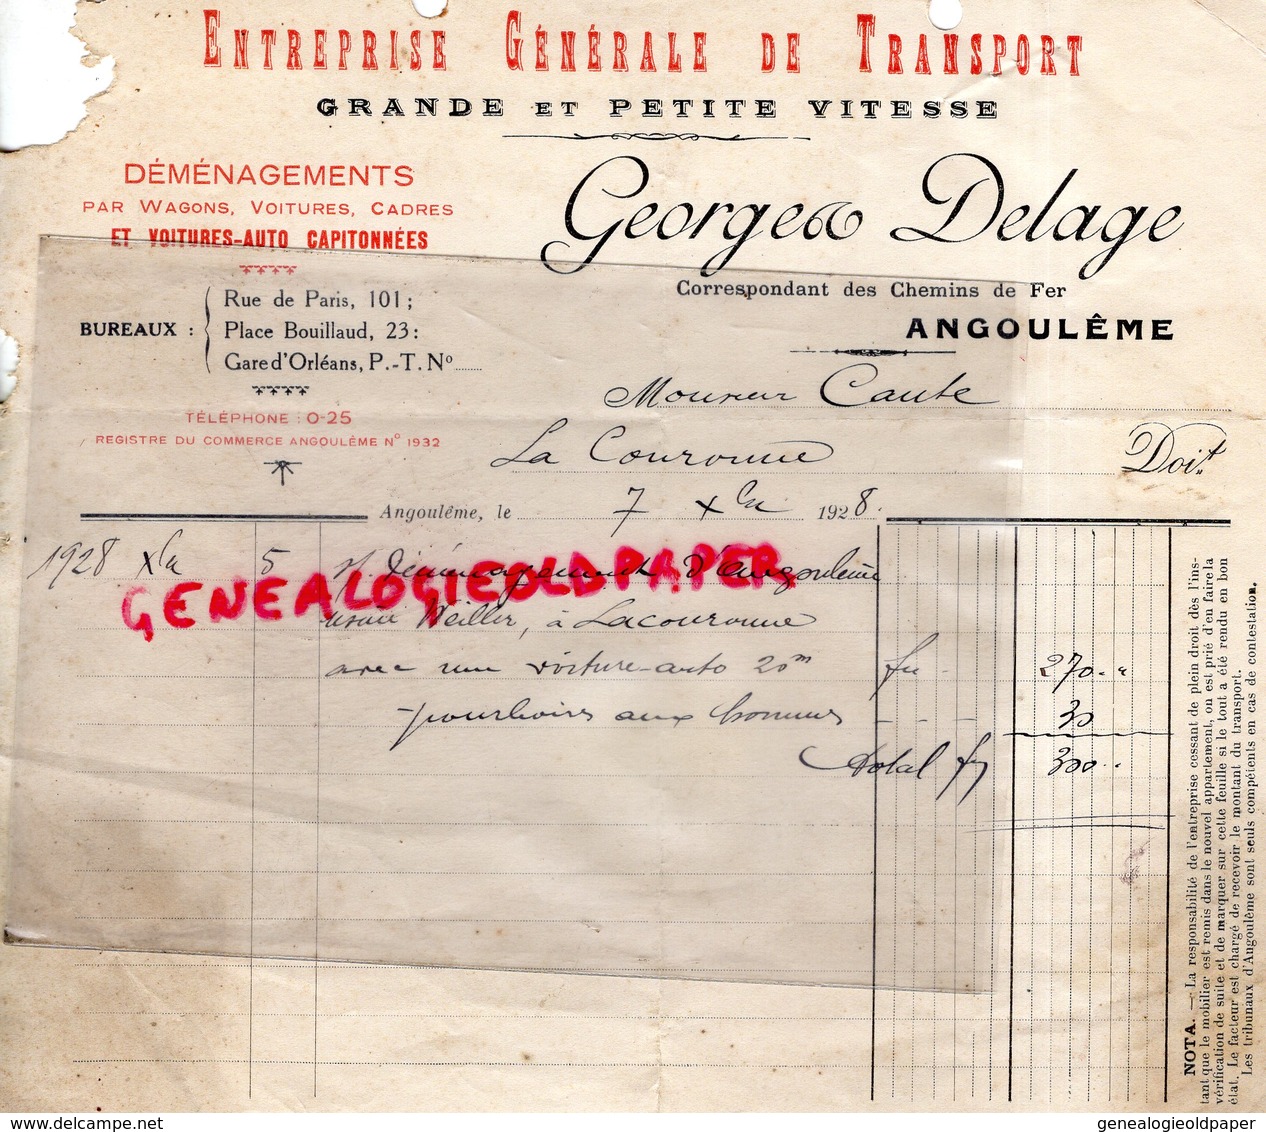 ENTREPRISE GÉNÉRALE DE TRANSPORT
GRANDE ET PETITE VITESSE
DÉMÉNAGEMENTS
PAR WAGONS, VOITURES, CADRES
ET VOITURES-AUTO CAPITONNÉES
Georges Delage
Correspondant des Chemins de Fer
ANGOULÊME
BUREAUX :
Rue de Paris, 101 ;
Place Bouillaud, 23 :
Gare d'Orléans, P.-T. No
TÉLÉPHONE : 0-25
REGISTRE DU COMMERCE ANGOULÊME No 1932
Monsieur Caute
La Couronne Doit
Angoulême, le 7 Xbre 1928.
1928 Xbre 5 déménagement d'Angoulême
usine Weiller, à Lacouronne
avec une voiture-auto 20m frs 270. "
pourboires aux hommes - - - 30
Total frs 300 . .
NOTA. — La responsabilité de l'entreprise cessant de plein droit dès l'ins-
tant que le mobilier est remis dans le nouvel appartement, on est prié d'en faire la
vérification de suite et de marquer sur cette feuille si le tout a été rendu en bon
état. Le facteur est chargé de recevoir le montant du transport.
Les tribunaux d'Angoulême sont seuls compétents en cas de contestation.
GENEALOGIEOLDPAPER
www.delcampe.net
genealogieoldpaper